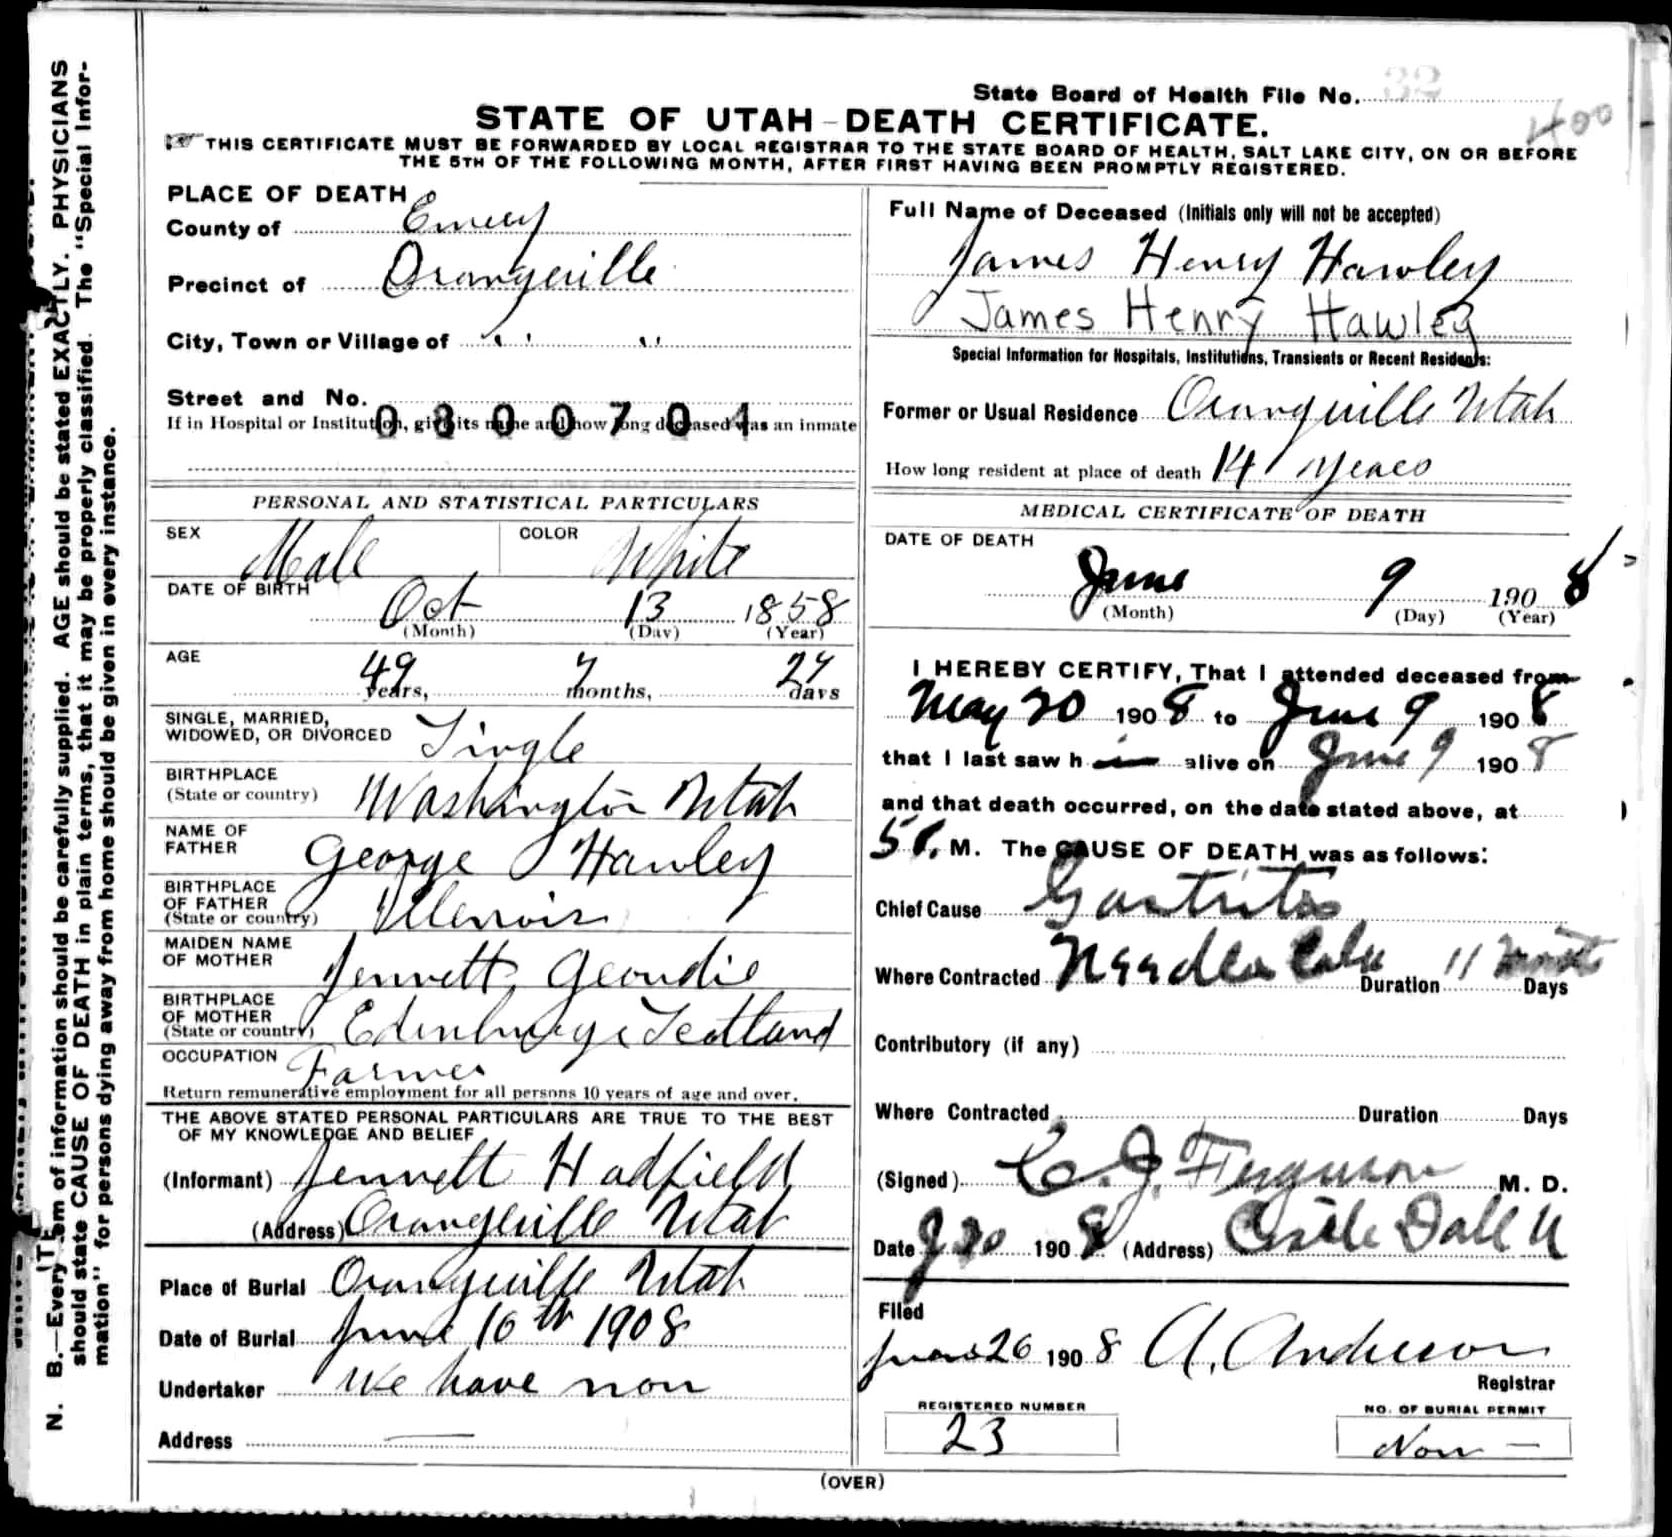 State Board of Health File No. 32
400
STATE OF UTAH - DEATH CERTIFICATE.
THIS CERTIFICATE MUST BE FORWARDED BY LOCAL REGISTRAR TO THE STATE BOARD OF HEALTH, SALT LAKE CITY, ON OR BEFORE
THE 5TH OF THE FOLLOWING MONTH, AFTER FIRST HAVING BEEN PROMPTLY REGISTERED.
PLACE OF DEATH
County of Emery
Precinct of Orangeville
City, Town or Village of " "
Street and No.
0800701
If in Hospital or Institution, give its name and how long deceased was an inmate
PERSONAL AND STATISTICAL PARTICULARS
SEX Male COLOR White
DATE OF BIRTH Oct 13 1858
(Month) (Day) (Year)
AGE 49 years, 7 months, 27 days
SINGLE, MARRIED,
WIDOWED, OR DIVORCED Single
BIRTHPLACE
(State or country) Washington Utah
NAME OF
FATHER George Hawley
BIRTHPLACE
OF FATHER
(State or country) Illenois
MAIDEN NAME
OF MOTHER Jennett Geoudie
BIRTHPLACE
OF MOTHER
(State or country) Edinburge Scotland
OCCUPATION Farmer
Return remunerative employment for all persons 10 years of age and over.
THE ABOVE STATED PERSONAL PARTICULARS ARE TRUE TO THE BEST
OF MY KNOWLEDGE AND BELIEF
(Informant) Jennett Hadfield
(Address) Orangeville Utah
Place of Burial Orangeville Utah
Date of Burial June 10th 1908
Undertaker We have non
Address
Full Name of Deceased (Initials only will not be accepted)
James Henry Hawley
James Henry Hawley
Special Information for Hospitals, Institutions, Transients or Recent Residents:
Former or Usual Residence Orangeville Utah
How long resident at place of death 14 years
MEDICAL CERTIFICATE OF DEATH
DATE OF DEATH
June 9 1908
(Month) (Day) (Year)
I HEREBY CERTIFY, That I attended deceased from
May 20 1908 to June 9 1908
that I last saw him alive on June 9 1908
and that death occurred, on the date stated above, at
5 P. M. The CAUSE OF DEATH was as follows:
Chief Cause Gastritis
Where Contracted Duration 11 Days
Contributory (if any)
Where Contracted Duration Days
(Signed) C. J. Ferguson M. D.
Date 1908 (Address) Castle Dall U
Filed
June 26 1908 A. Anderson
Registrar
REGISTERED NUMBER
23
NO. OF BURIAL PERMIT
Non
(OVER)
N. B.—Every item of information should be carefully supplied. AGE should be stated EXACTLY. PHYSICIANS
should state CAUSE OF DEATH in plain terms, that it may be properly classified. The "Special Infor-
mation" for persons dying away from home should be given in every instance.